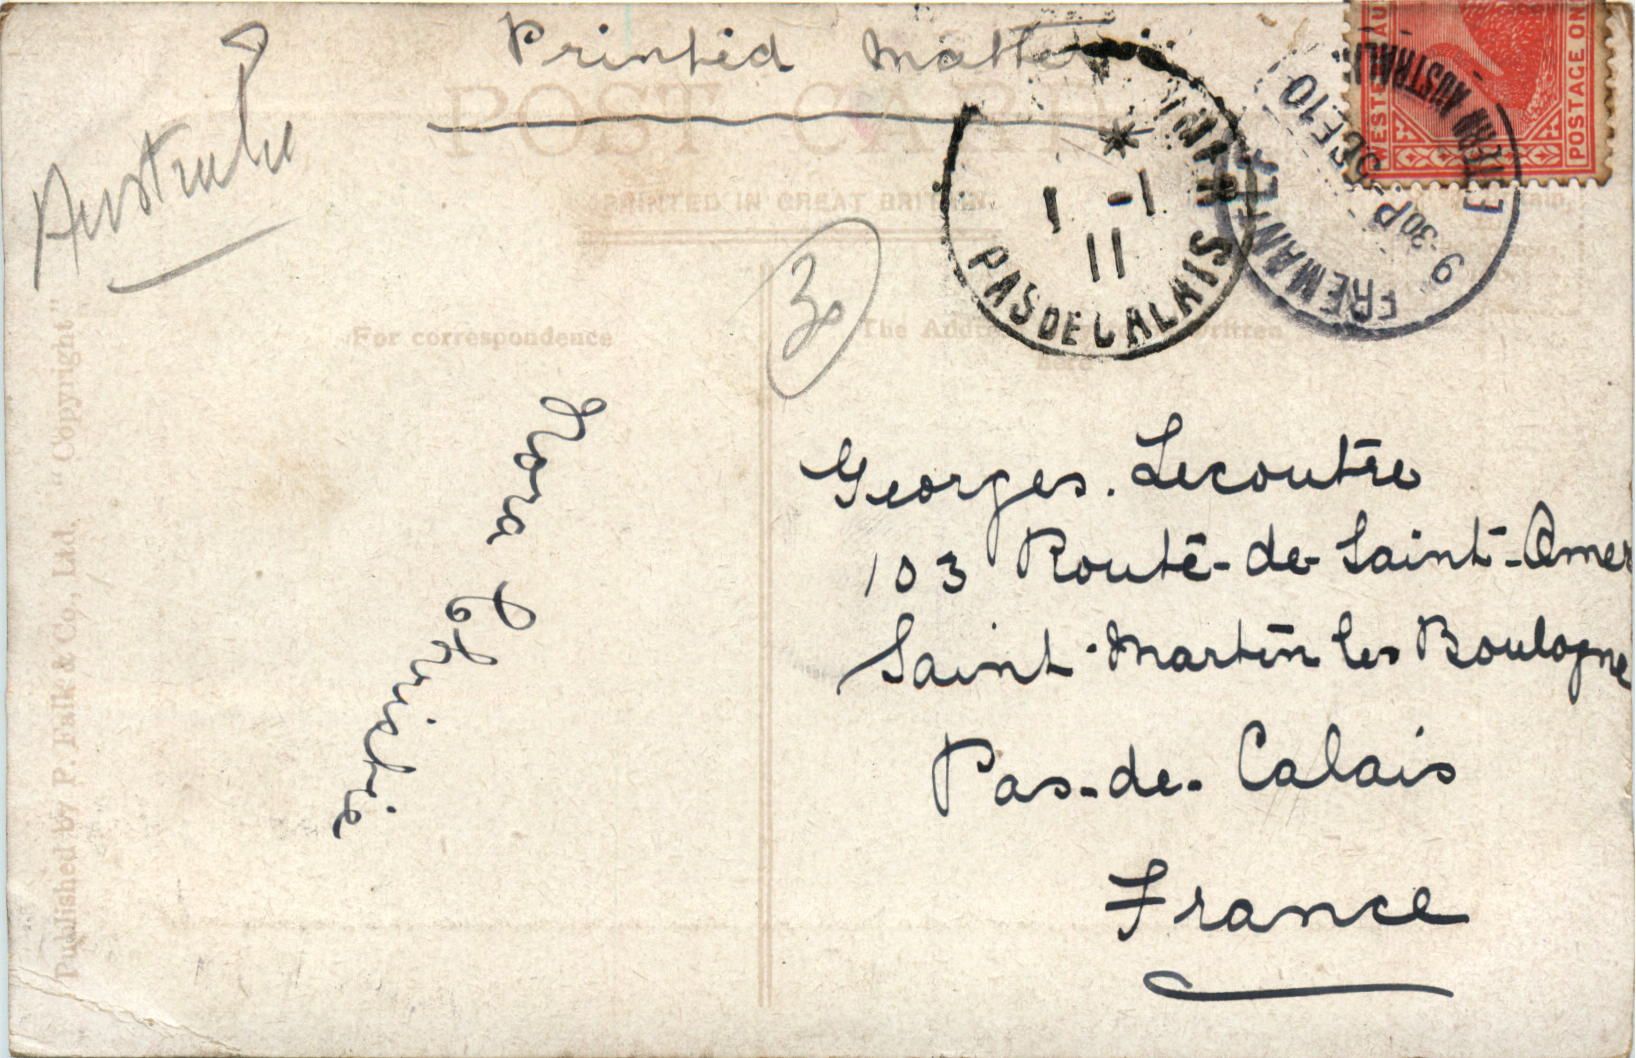 Printed Matter
POST CARD
Australie
PRINTED IN GREAT BRITAIN.
WESTERN AU
POSTAGE ON
FREMANTLE
WESTERN AUSTRALI
9-30P
DE 10
1 -1
11
PAS DE CALAIS
30
For correspondence
The Addr ritten
here
Published by P. Falk & Co., Ltd. "Copyright"
Nora Christie
Georges. Lecoutre
103 Route-de-Saint-Omer
Saint-Martin les Boulogne
Pas-de-Calais
France